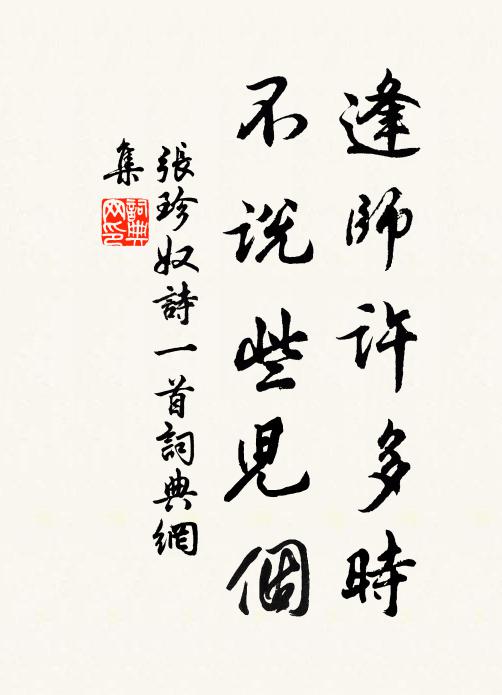 逢師許多時
不説些兒個
張珍奴詩一首詞典網
集
詞典
网印